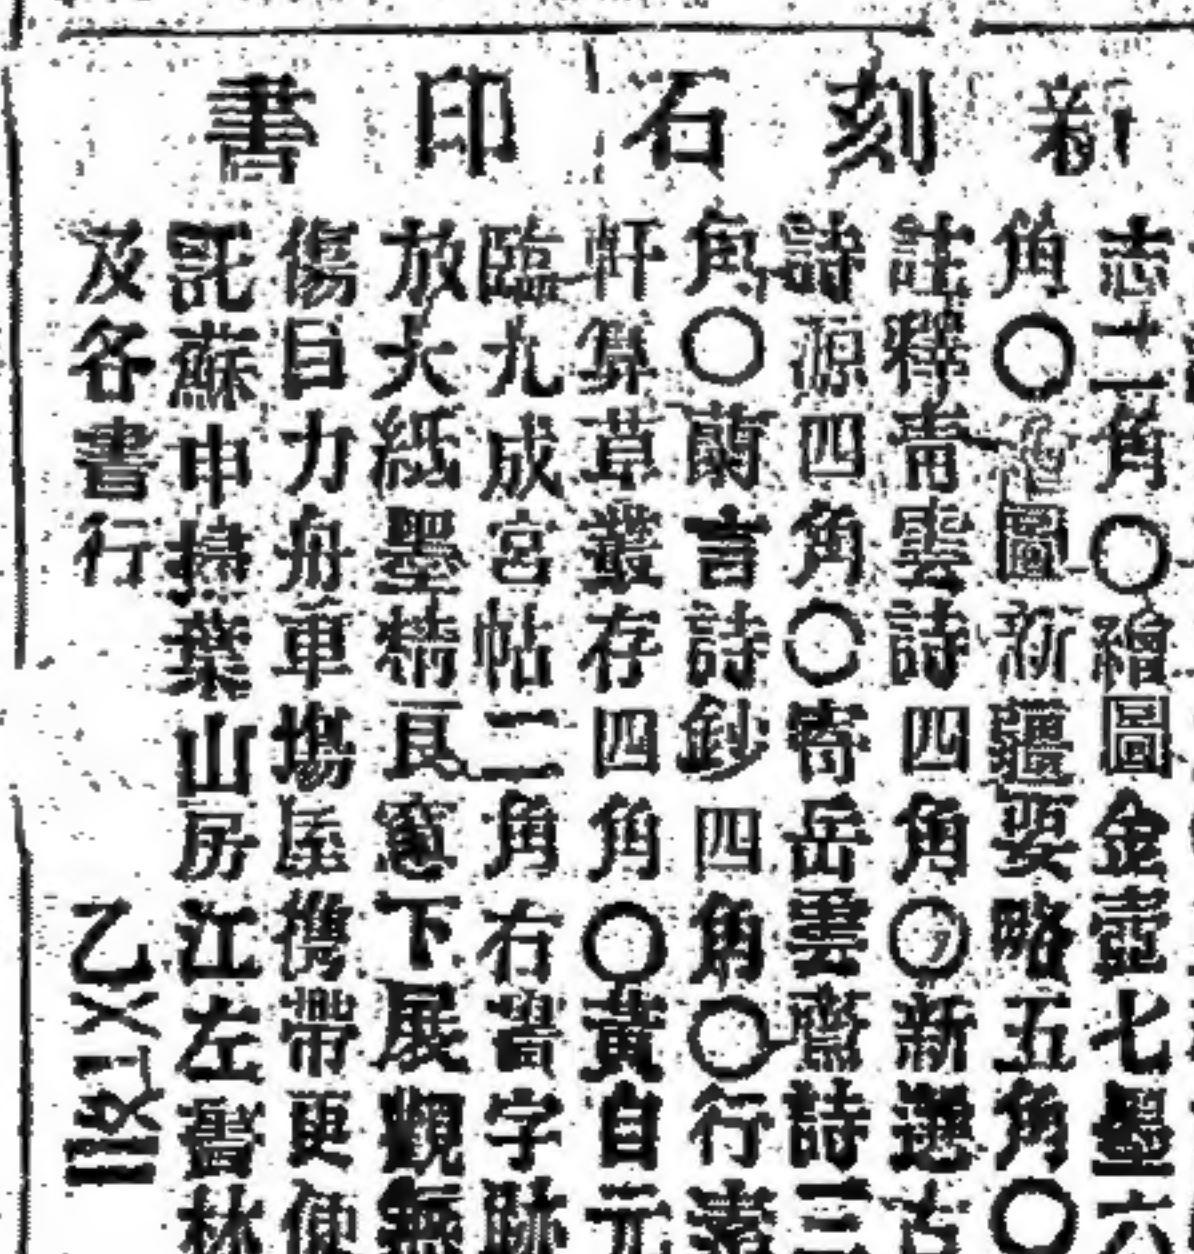 新刻石印書
志十二角〇繪圖金壺七墨六
角〇圖新疆要略五角〇
註釋青雲詩四角〇新選古
詩源四角〇寄岳雲齋詩三
角〇蘭言詩鈔四角〇行素
軒算草叢存四角〇黃自元
臨九成宮帖二角右書字跡
放大紙墨精良窗下展觀無
傷目力舟車塲屋携帶更便
託蘇申掃葉山房江左書林
及各書行 乙